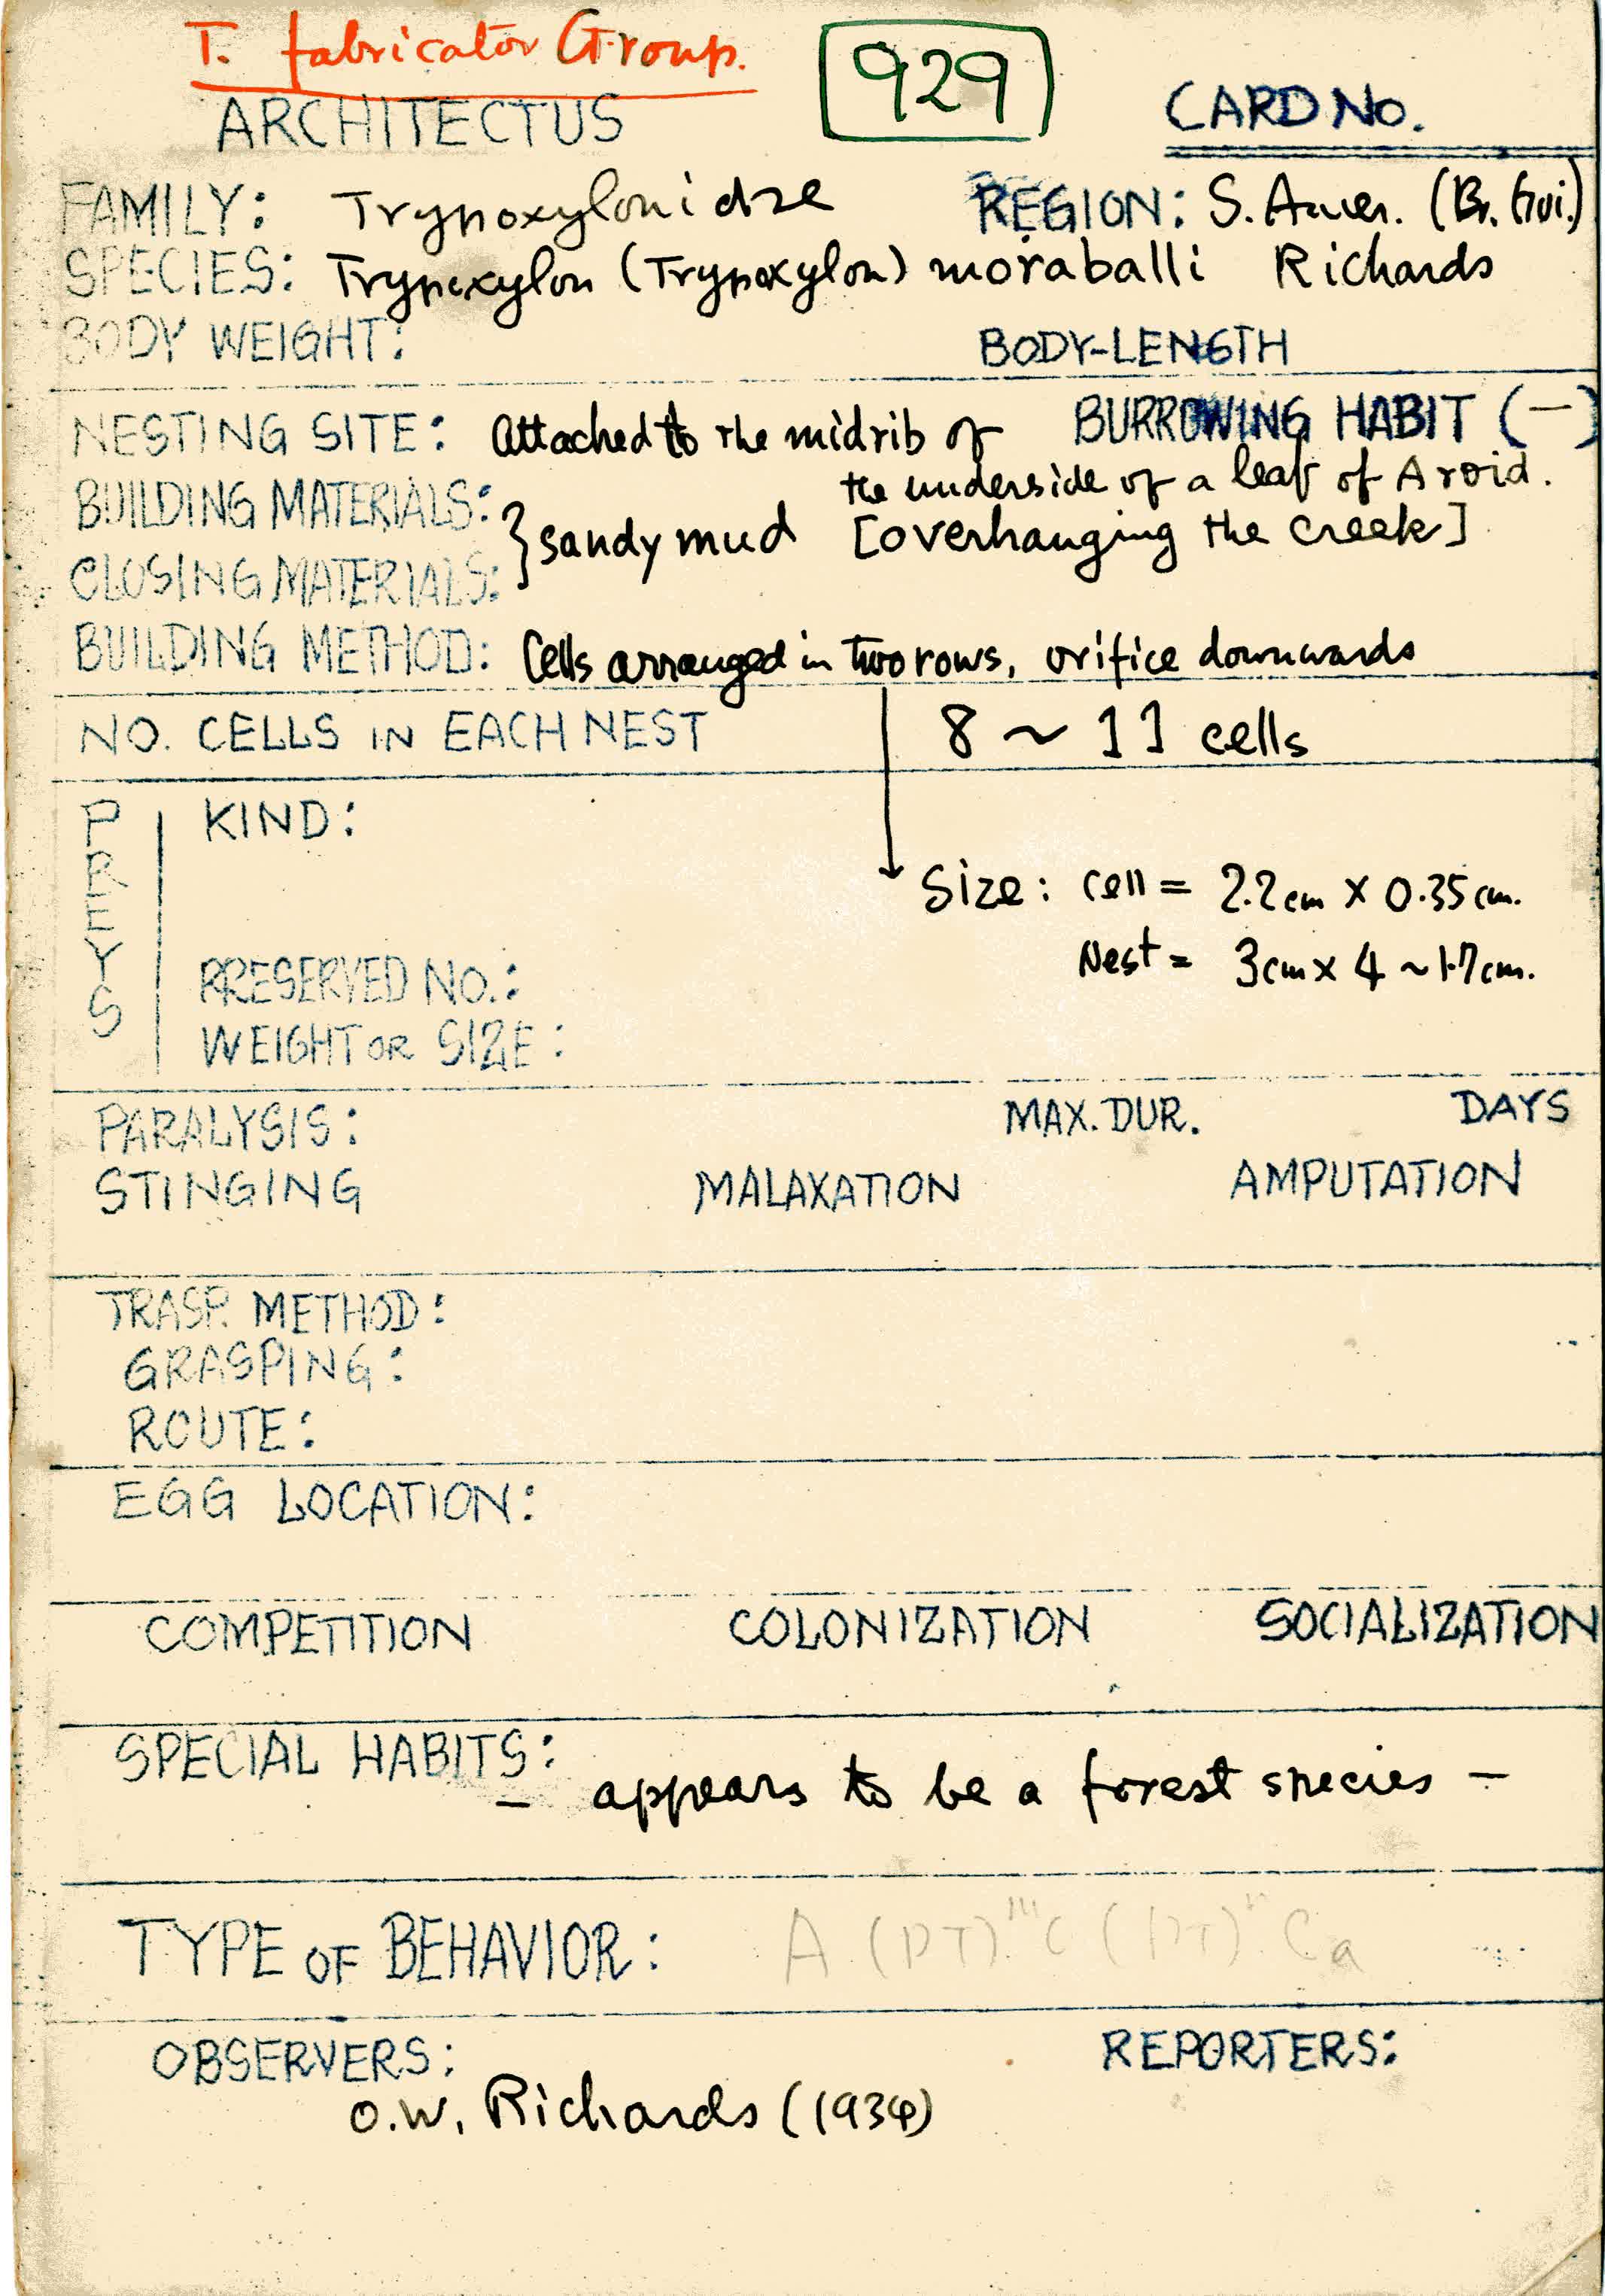 T. fabricator Group.
929
ARCHITECTUS
CARD NO.
FAMILY: Trypoxylonidae REGION: S. Amer. (Br. Gui.)
SPECIES: Trypoxylon (Trypoxylon) moraballi Richards
BODY WEIGHT: BODY-LENGTH
NESTING SITE: Attached to the midrib of BURROWING HABIT (-)
the underside of a leaf of Aroid.
BUILDING MATERIALS:
} sandy mud [overhanging the creek]
CLOSING MATERIALS:
BUILDING METHOD: Cells arranged in two rows, orifice downwards
NO. CELLS IN EACH NEST 8 ~ 11 cells
PREYS
KIND:
Size: cell = 2.2 cm × 0.35 cm.
Nest = 3 cm × 4 ~ 1.7 cm.
PRESERVED NO.:
WEIGHT OR SIZE:
PARALYSIS: MAX. DUR. DAYS
STINGING MALAXATION AMPUTATION
TRASP. METHOD:
GRASPING:
ROUTE:
EGG LOCATION:
COMPETITION COLONIZATION SOCIALIZATION
SPECIAL HABITS:
– appears to be a forest species –
TYPE OF BEHAVIOR: A (PT) C (PT) Ca
OBSERVERS: REPORTERS:
O.W. Richards (1934)